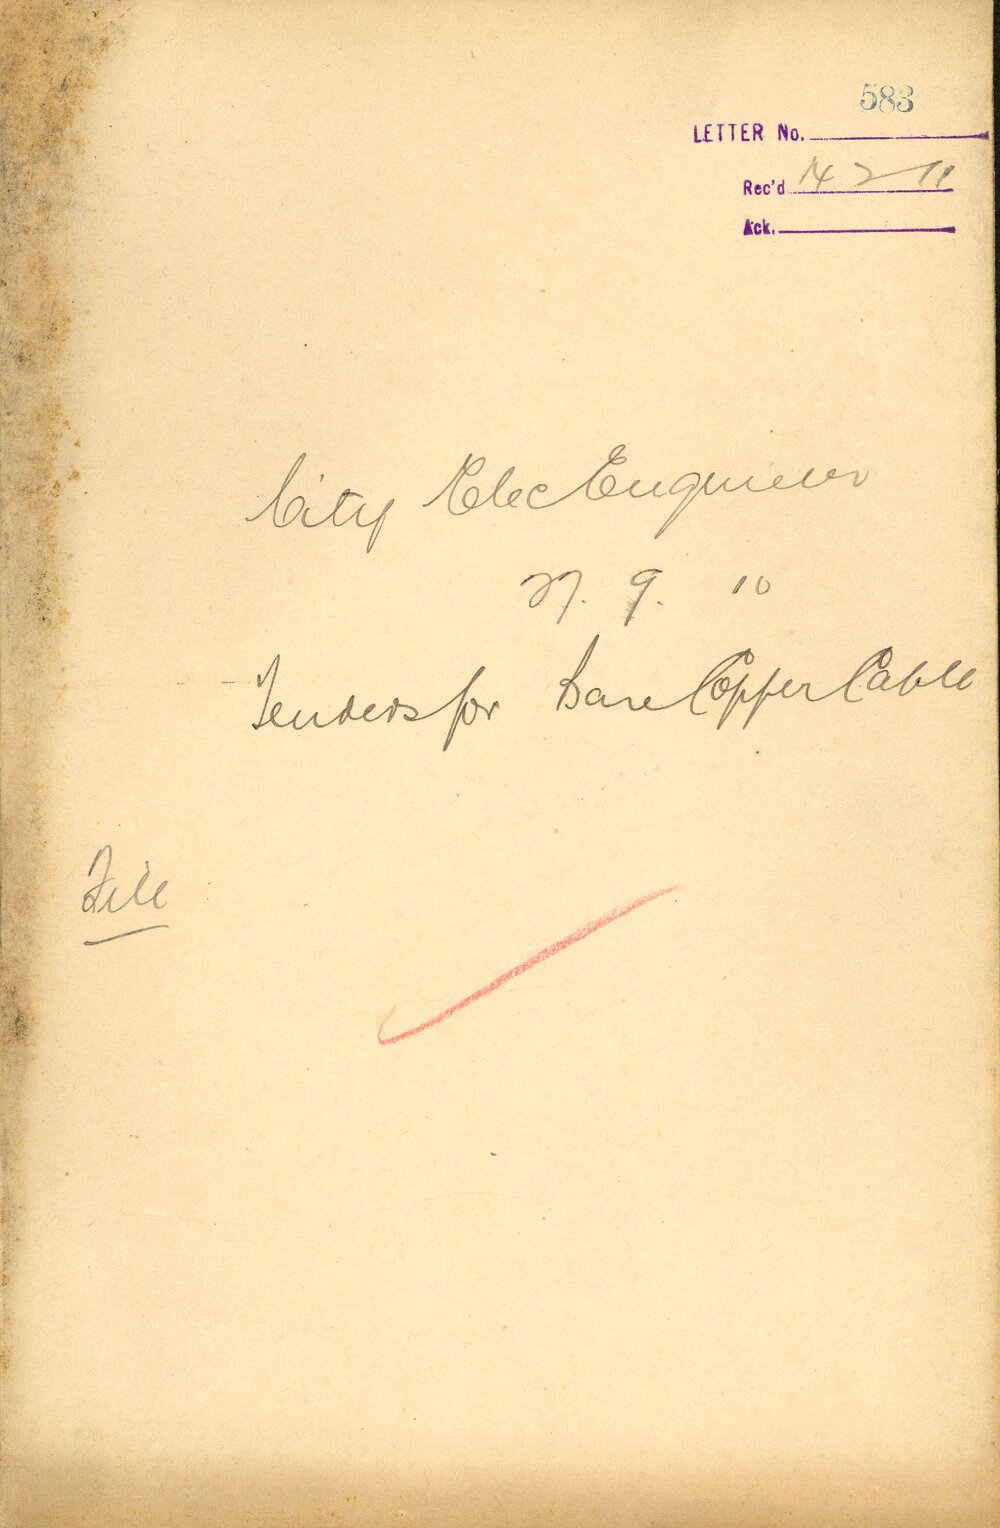 583
LETTER No.
Rec'd 14 2 11
Ack.
City Elec Engineer
27. 9. 10
Tenders for Bare Copper Cable
File